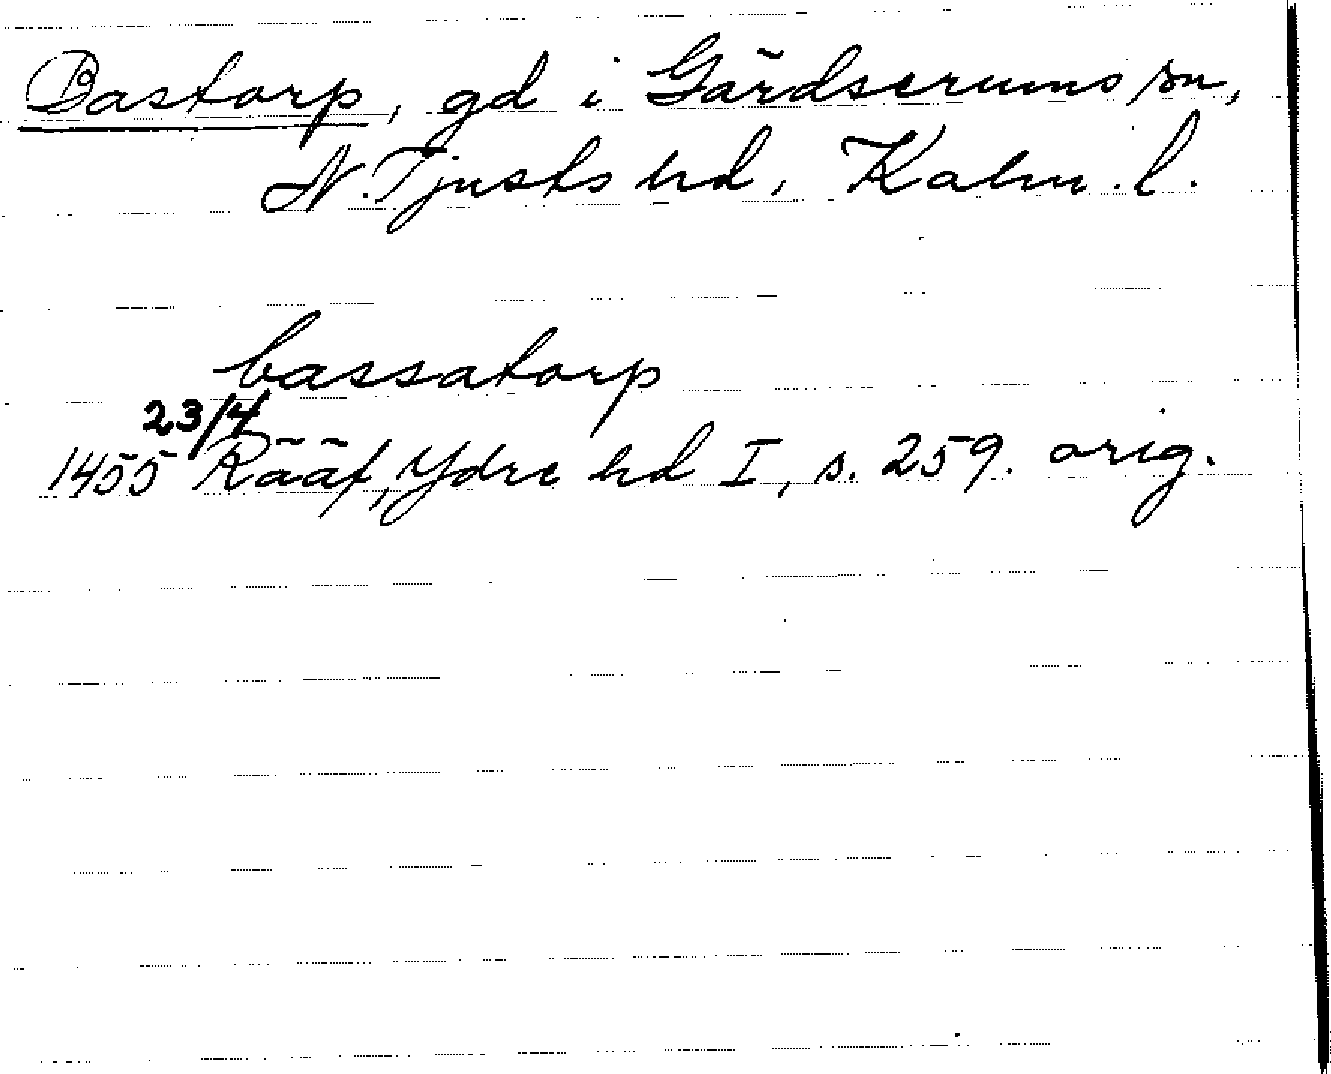 Bastorp, gd i Gärdserums sn,
N. Tjusts hd, Kalm. l.
bassatorp
23/4
1455 Rääf, Ydre hd I, s. 259. orig.